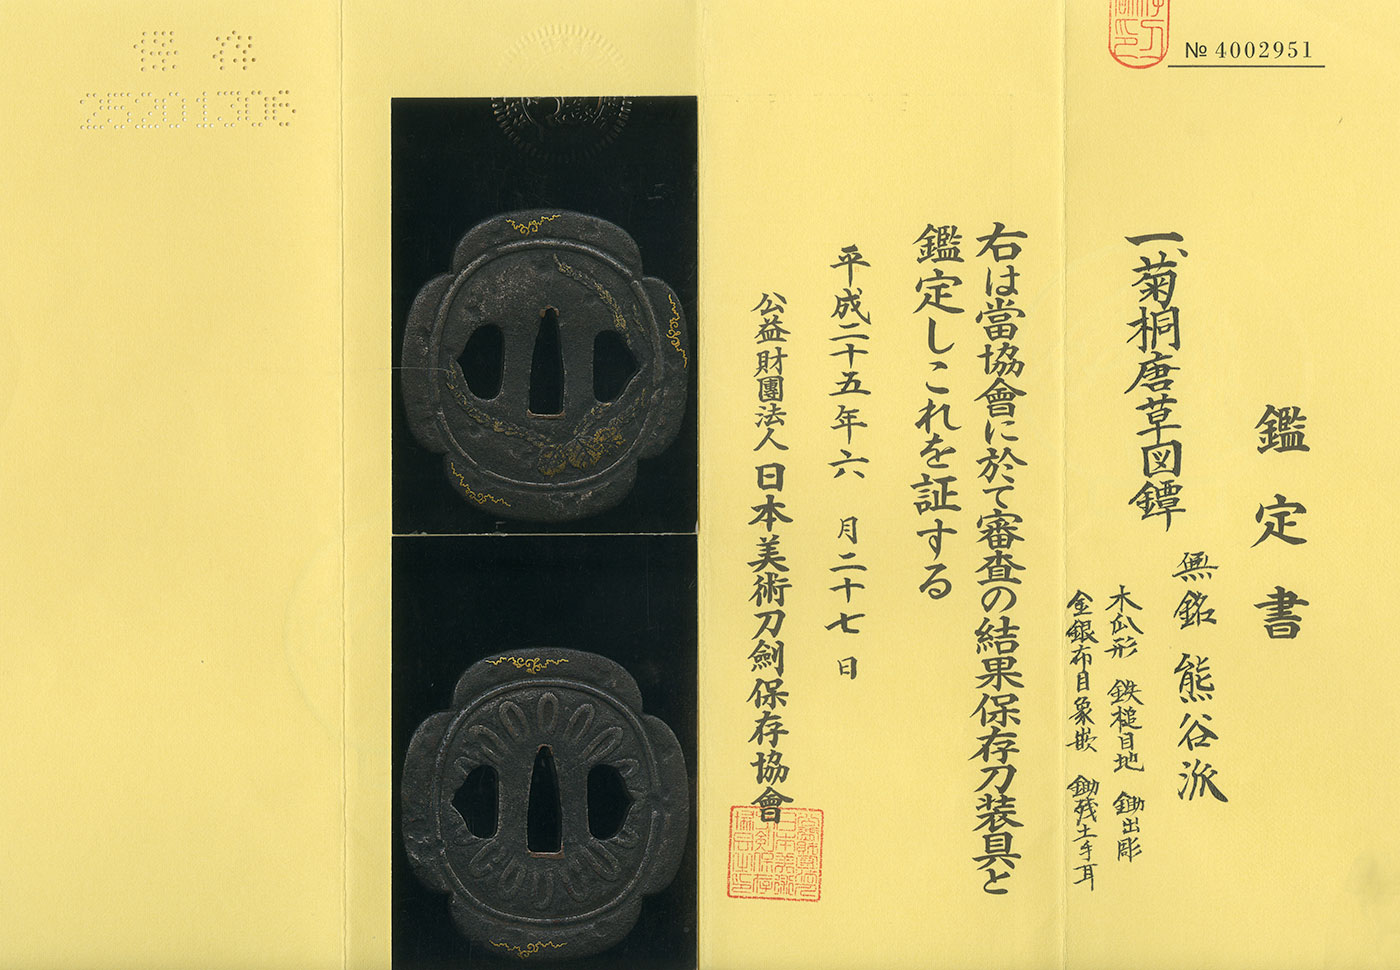 № 4002951
鑑定書
一、菊桐唐草図鐔
無銘 熊谷派
木瓜形 鉄槌目地 鋤出彫
金銀布目象嵌 鋤残土手耳
右は當協會に於て審査の結果保存刀装具と
鑑定しこれを証する
平成二十五年六月二十七日
公益財團法人日本美術刀劍保存協會
保存
25201306